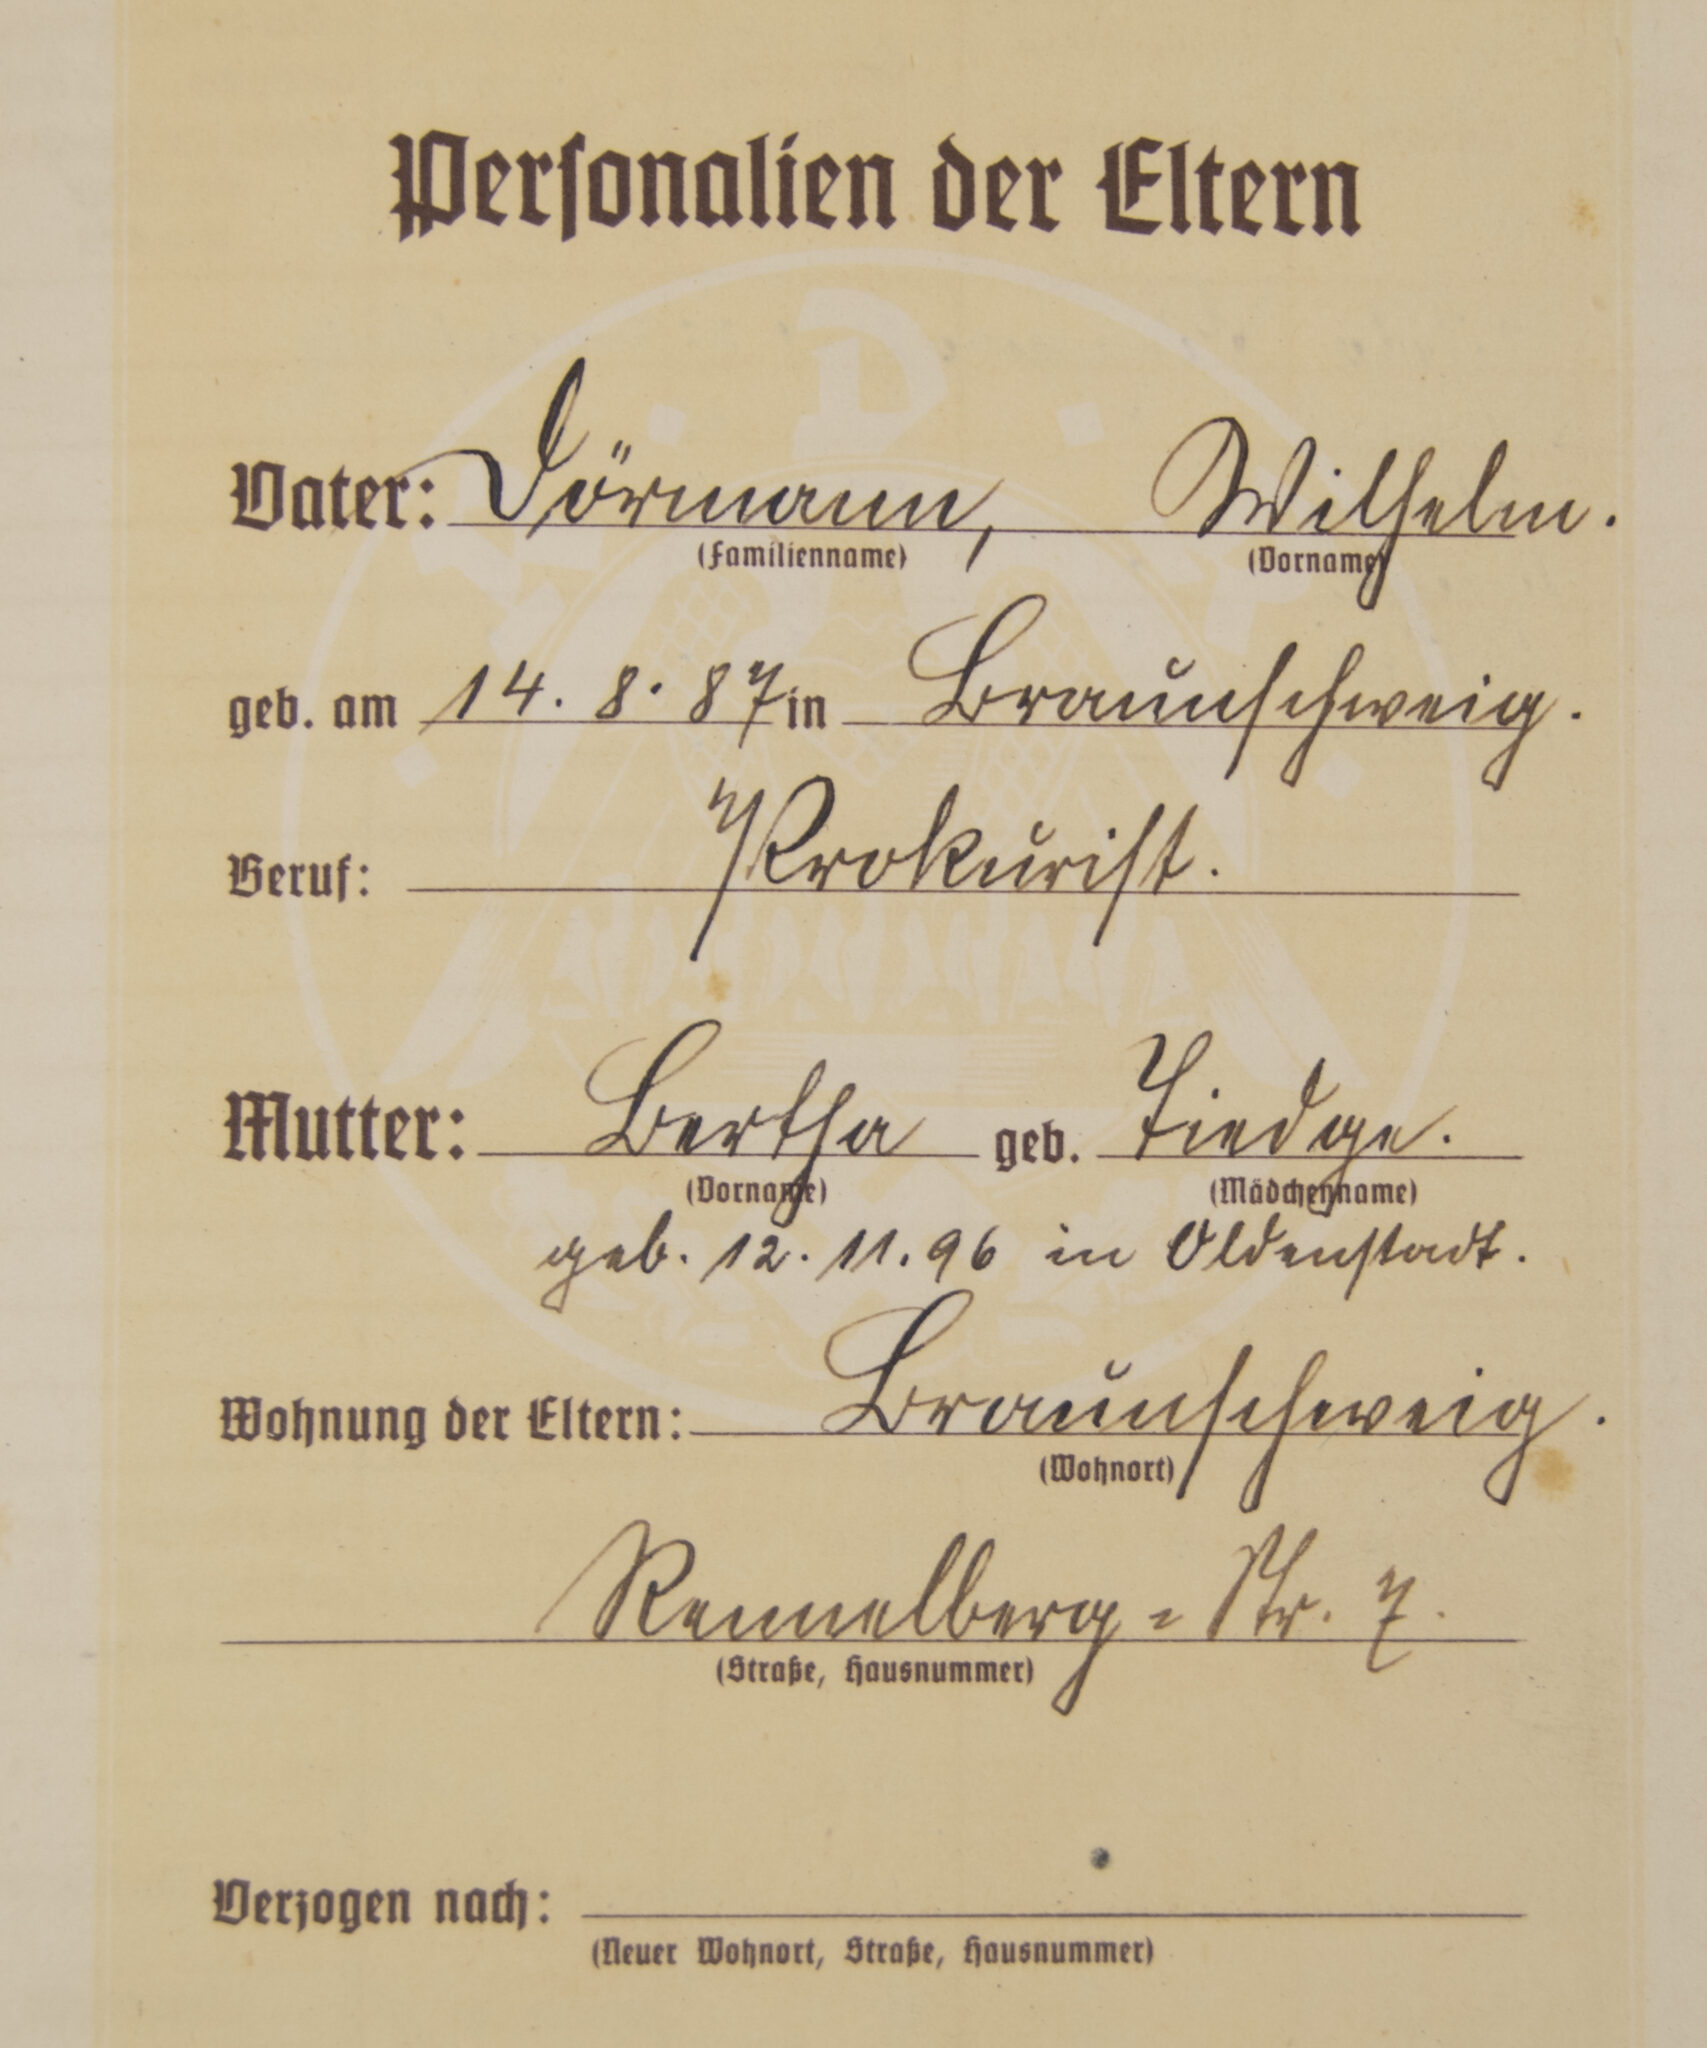 Personalien der Eltern
Vater: Dörmann, Wilhelm.
(Familienname) (Vorname)
geb. am 14. 8. 87 in Braunschweig.
Beruf: Prokurist.
Mutter: Bertha geb. Tiedge.
(Vorname) (Mädchenname)
geb. 12. 11. 96 in Oldenstadt.
Wohnung der Eltern: Braunschweig.
(Wohnort)
Rennelberg-Str. 7.
(Straße, Hausnummer)
Verzogen nach:
(Neuer Wohnort, Straße, Hausnummer)